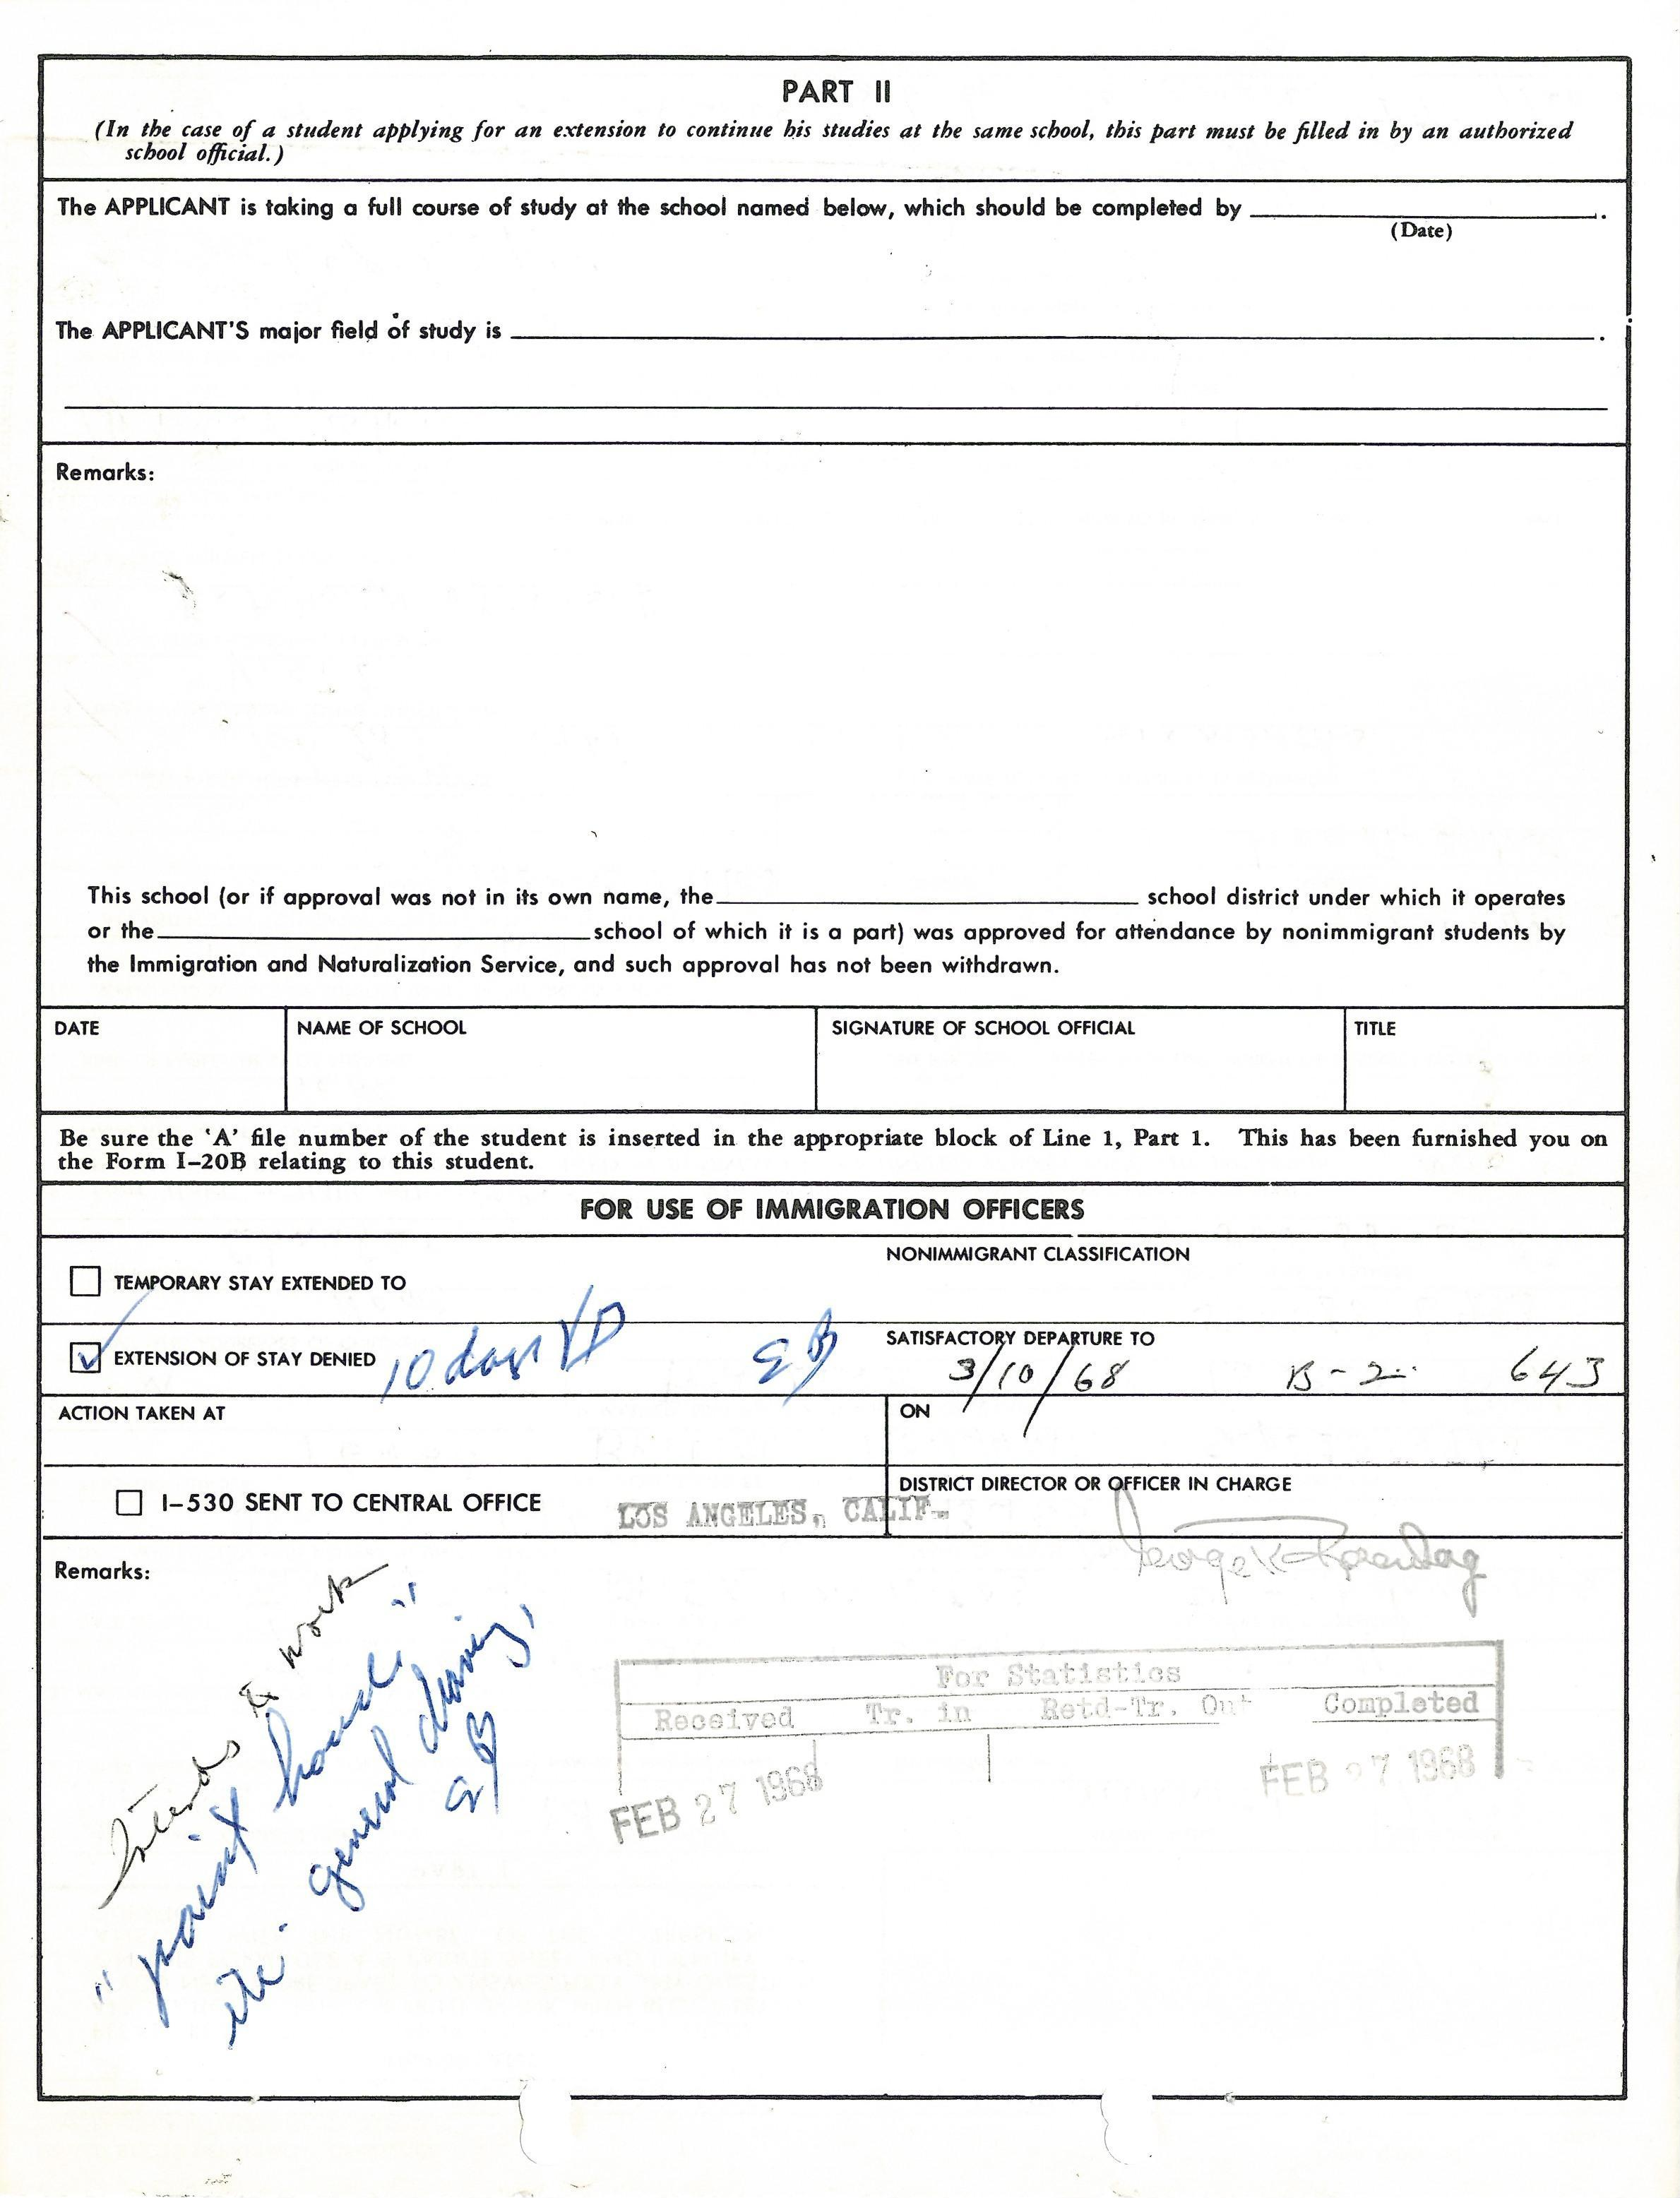 PART II
(In the case of a student applying for an extension to continue his studies at the same school, this part must be filled in by an authorized
school official.)
The APPLICANT is taking a full course of study at the school named below, which should be completed by
(Date)
The APPLICANT'S major field of study is
Remarks:
This school (or if approval was not in its own name, the school district under which it operates
or the school of which it is a part) was approved for attendance by nonimmigrant students by
the Immigration and Naturalization Service, and such approval has not been withdrawn.
DATE NAME OF SCHOOL SIGNATURE OF SCHOOL OFFICIAL TITLE
Be sure the 'A' file number of the student is inserted in the appropriate block of Line 1, Part 1. This has been furnished you on
the Form I-20B relating to this student.
FOR USE OF IMMIGRATION OFFICERS
NONIMMIGRANT CLASSIFICATION
TEMPORARY STAY EXTENDED TO
SATISFACTORY DEPARTURE TO
EXTENSION OF STAY DENIED 10 days VD EB 3/10/68 B-2 643
ACTION TAKEN AT ON
DISTRICT DIRECTOR OR OFFICER IN CHARGE
I-530 SENT TO CENTRAL OFFICE
LOS ANGELES, CALIF.
Remarks:
Intends to work
"paint house"
etc. general
EB
For Statistics
Received Tr. in Retd-Tr. Out Completed
FEB 27 1968 FEB 27 1968